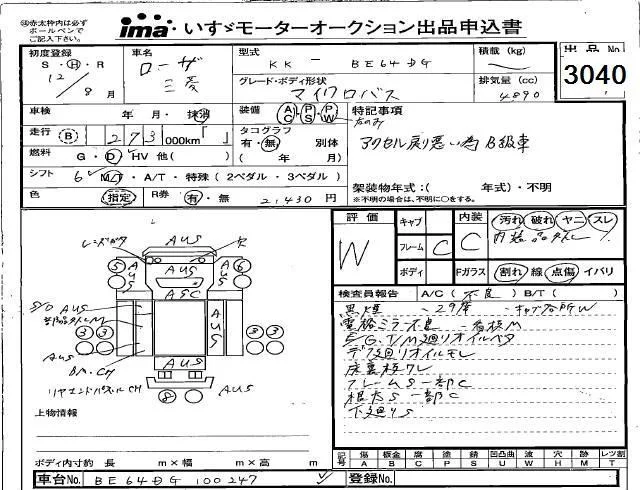 赤太枠内は必ず
ボールペンで
ご記入ください。
ima いすゞモーターオークション出品申込書
初度登録
S・H・R
12/8月
車名
ローザ
三菱
型式
KK - BE64DG
グレード・ボディ形状
マイクロバス
積載(kg)
排気量(cc)
4890
出品No.
3040
車検 年 月・抹消
走行 B 273 000km「 」
燃料 G・D HV 他( )
シフト 6 M/T・A/T・特殊(2ペダル・3ペダル)
色 指定 R券 有・無 21,430円
装備 AC PS PW
右のみ
タコグラフ
有・無 別体
( 年 月)
特記事項
アクセル戻り悪い為 B級車
架装物年式:( 年式)・不明
※不明の場合は、不明に○をする。
レンズカケ
AUS
AUS
AUS
ASC
S/D AUS
AUS
AUS
AUS
BM・CM
リヤエンドパネルCM
AUS
5
6
3 3
3 3
8
評価
W
キャブ
フレーム C
ボディ
内装
C
Fガラス
汚れ 破れ ヤニ スレ
割れ 線 点傷 イバリ
検査員報告 A/C(不良) B/T( )
黒煙
電格ミラー不良
E/G、T/M廻りオイルベタ
デフ廻りオイルモレ
フレームS一部C
下廻りS
上物情報
ボディ内寸約 長 m×幅 m×高 m
記号
傷 板金 腐 塗 錆 凹凸曲 波 穴 跡 レツ割
A B C P S U W H M T
車台No. BE64DG 100247
登録No.